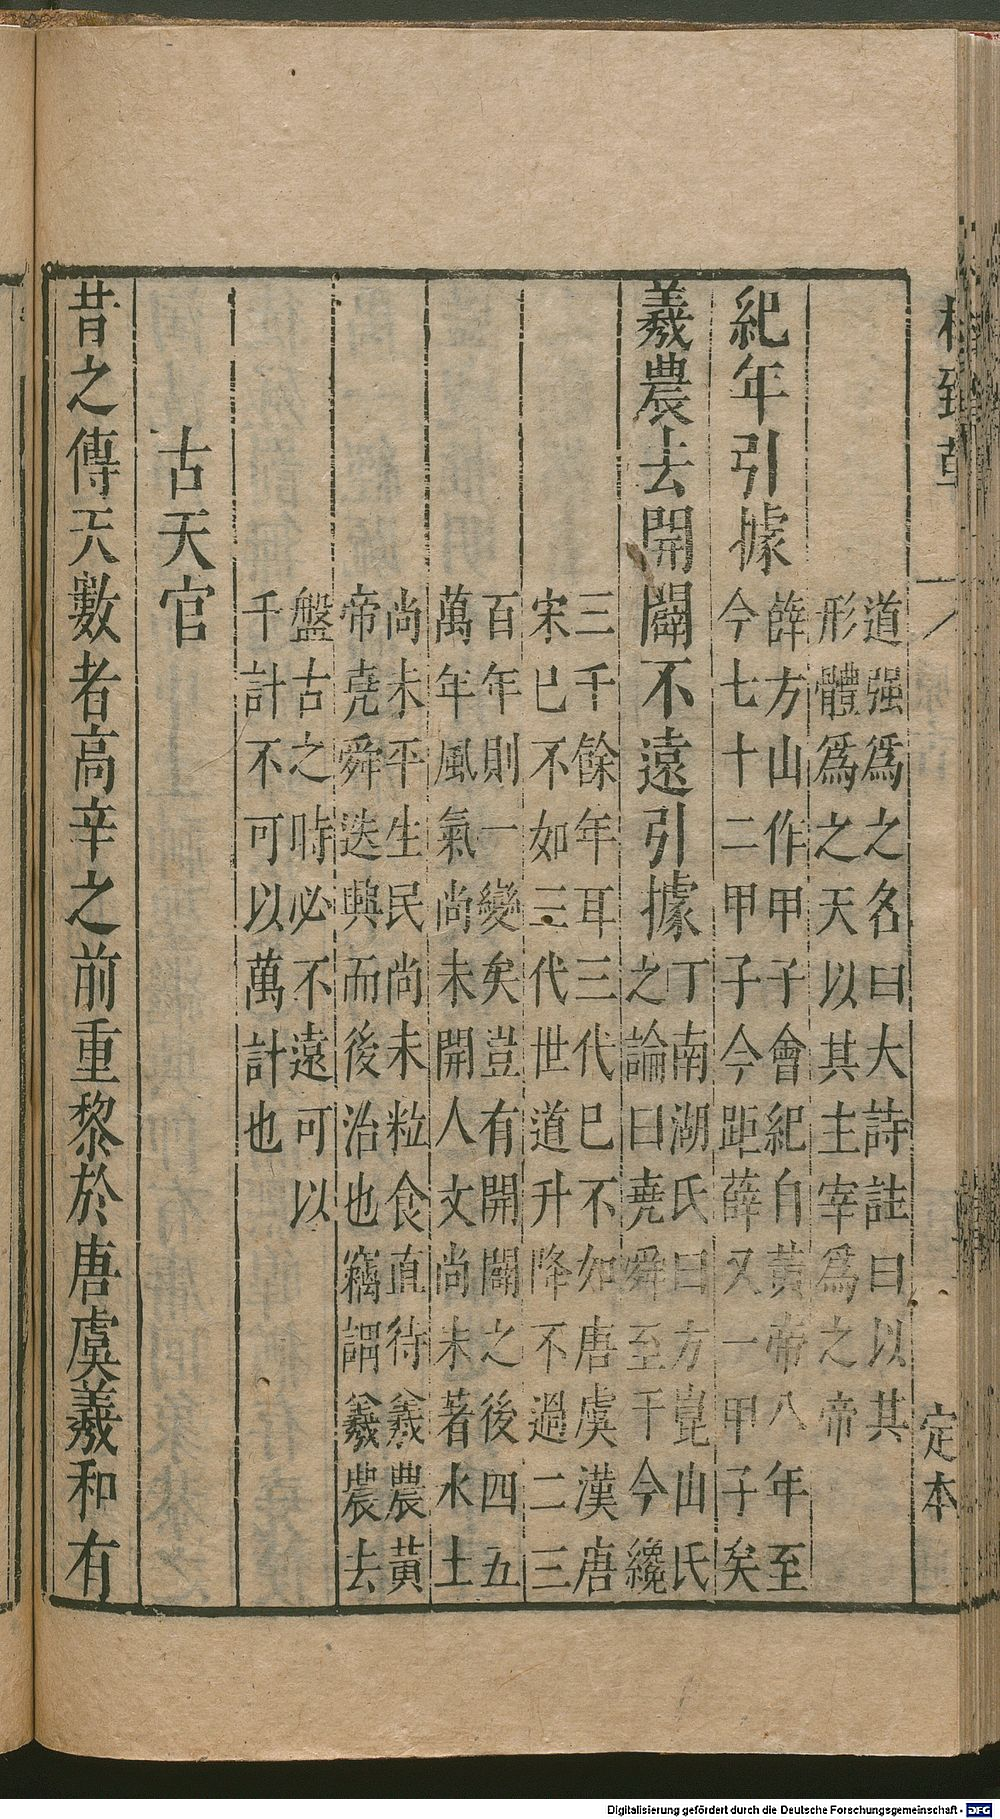 格致草
定本
道强爲之名曰大詩註曰以其
形體爲之天以其主宰爲之帝
紀年引據
薛方山作甲子會紀自黃帝八年至
今七十二甲子今距薛又一甲子矣
羲農去開闢不遠引據
丁南湖氏曰方崑山氏
之論曰堯舜至于今纔
三千餘年耳三代已不如唐虞漢唐
宋已不如三代世道升降不過二三
百年則一變矣豈有開闢之後四五
萬年風氣尚未開人文尚未著水土
尚未平生民尚未粒食直待羲農黃
帝堯舜迭興而後治也竊謂羲農去
盤古之時必不遠可以
千計不可以萬計也
古天官
昔之傳天數者高辛之前重黎於唐虞羲和有
Digitalisierung gefördert durch die Deutsche Forschungsgemeinschaft - DFG